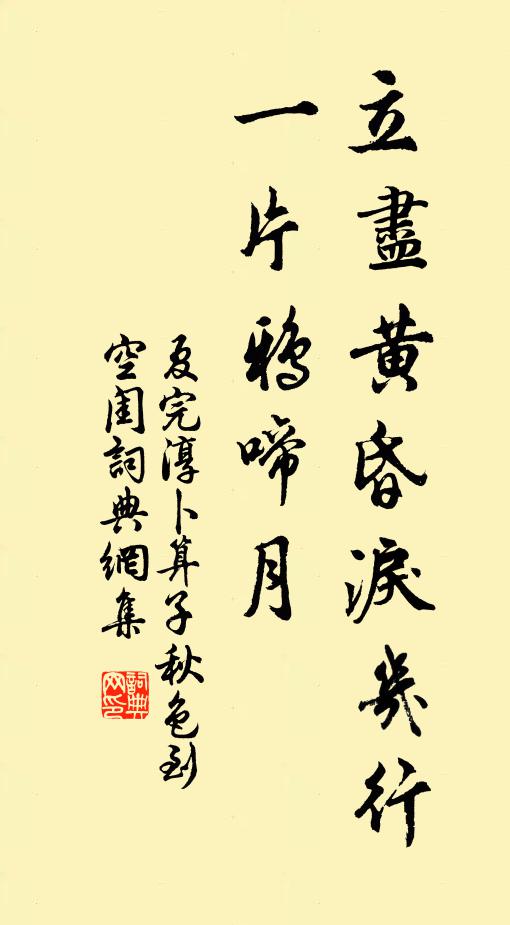 立盡黄昏淚幾行
一片鴉啼月
夏完淳卜算子秋色到
空閨詞典網集
詞典
网印